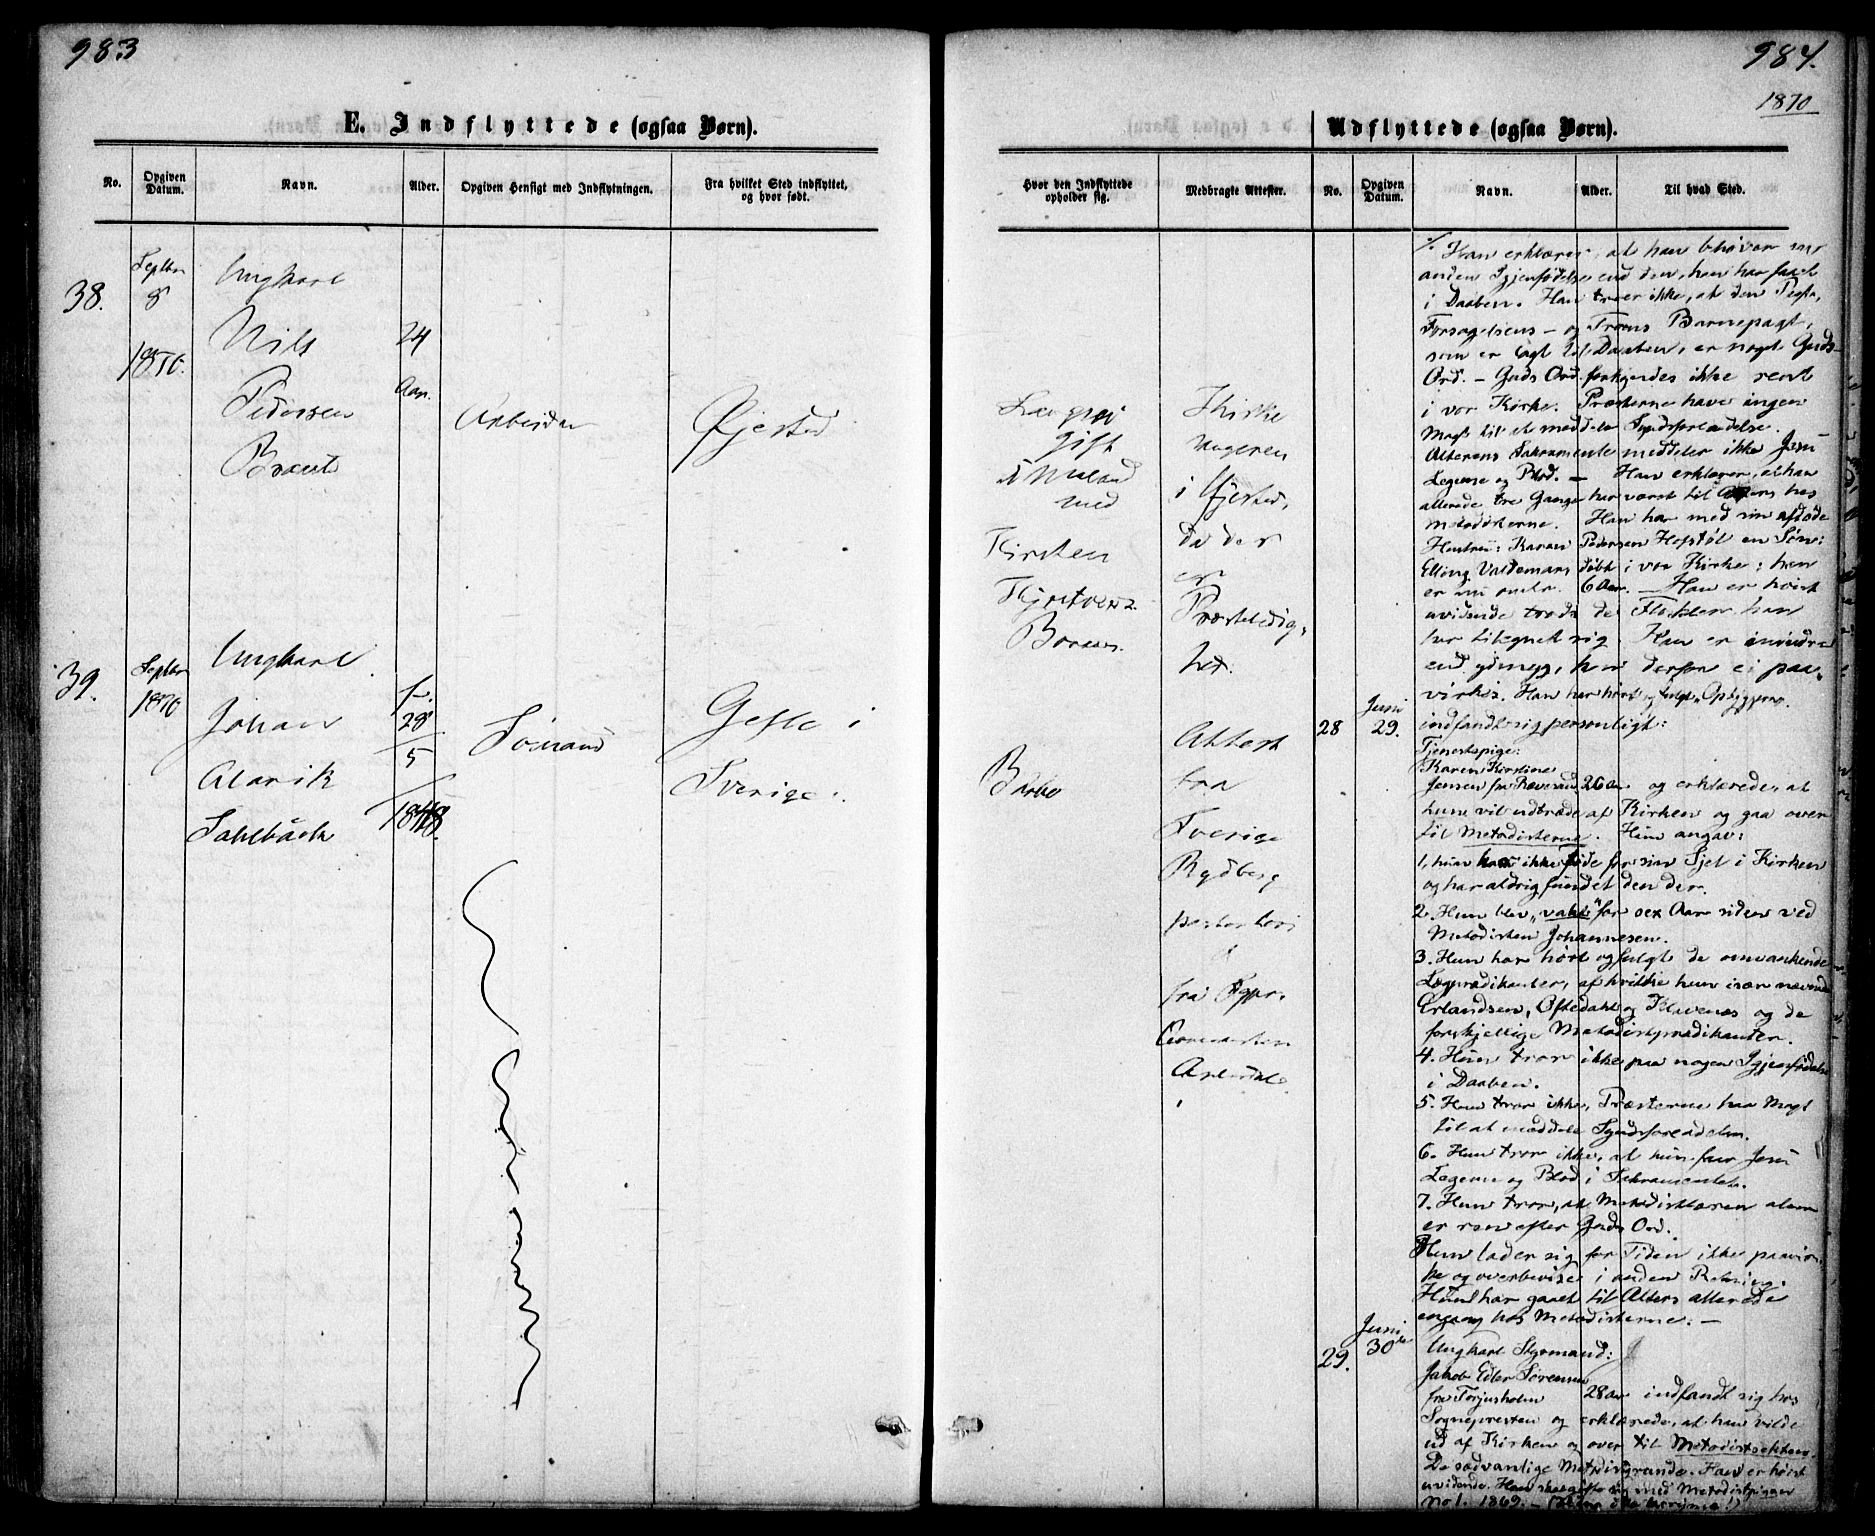 983
E. Indflyttede (ogsaa Børn).
No.
Opgiven Datum.
Navn.
Alder.
Opgiven Hensigt med Indflytningen.
Fra hvilket Sted indflyttet, og hvor født.
38.
Septbr
8
1870.
Ungkarl
Nils
Pedersen
24
Aar.
Arbeider
Øjestad
39.
Septbr
1870
Ungkarl
Johan
Alarik
Sahlbäck
28
5
Sömand
Gefle i
Sverige.
984.
1870
Udflyttede (ogsaa Børn).
Hvor den Indflyttede opholder sig.
Medbragte Attester.
No.
Opgiven Datum.
Navn.
Alder.
Til hvad Sted.
gift
med
Kirsten
i Øjestad,
da der
er
Præsteledig-
hed.
Barbo
Attest
fra
Sverige
Rydberg
fra
Arendal
Han erklærer, at han behøver
anden Igjenfødelse end den, han har faaet
i Daaben. Han troer ikke, at den Pagt,
Forsagelsens - og Troens Barnepagt,
som er lagt til Daaben, er nogt Guds-
Ord. - Guds Ord forkyndes ikke rent
i vor Kirke. Præsterne have ingen
Magt til at meddele Syndsforladelse.
Alterens Sakramente meddeler ikke Jesu
Legeme og Blod. - Han erklærer, at han
allerede tre Gange har været til Alters hos
Metodisterne. Han har med sin afdøde
Hustru: Karen Pedersen Hofstøl en Søn:
Elling Valdemar, døbt i vor Kirke; han
er nu omtr. 6 Aar. - Han er høist
uvidende trods de Floskler han
har tilegnet sig. Han er mindre
end ydmyg, er derfor ei paa-
virkes. Han har hørt
28
Juni
29.
indfandt sig personligt:
Tjenestepige:
Karen Kirstine
Jensen fra Røvesand 26 Aar og erklærede, at
hun vil udtræde af Kirken og gaa over
til Metodisterne. Hun angav:
1, hun har ikke føde for sin Sjel i Kirken
og har aldrig fundet den der.
2. Hun blev "vakt" for sex Aar siden ved
Metodisten Johannesen.
3. Hun har hørt og fulgt de omvankende
Lægprædikanter, af hvilke hun især nævner
Erlandsen, Oftedahl og Klavenæs og de
forskjellige Metodistprædikanter.
4. Hun tror ikke paa nogen Igjenfødelse
i Daaben.
5. Hun tror ikke, Præsterne har Magt
til at meddele Syndsforladelse.
6. Hun tror ikke, at hun faar Jesu
Legeme og Blod i Sakramentet.
7. Hun tror, at Metodistlæren alene
er ren efter Guds Ord.
Hun lader sig for Tiden ikke paavir-
ke og overbevise i anden Retning.
Hun har gaaet til Alters allerede
engang hos Metodisterne. -
29.
Juni
30te
Ungkarl Styrmand:
Jakob Edler Sørensen
fra Torjusholm 28 Aar indfandt sig hos
Sognepresten og erklærede, at han vilde
ud af Kirken og over til Metodistsekten.
De sædvanlige Metodistgrunde. Han er høist
uvidende. Han skal gifte sig med Metodistpigen
No 1. 1869. -